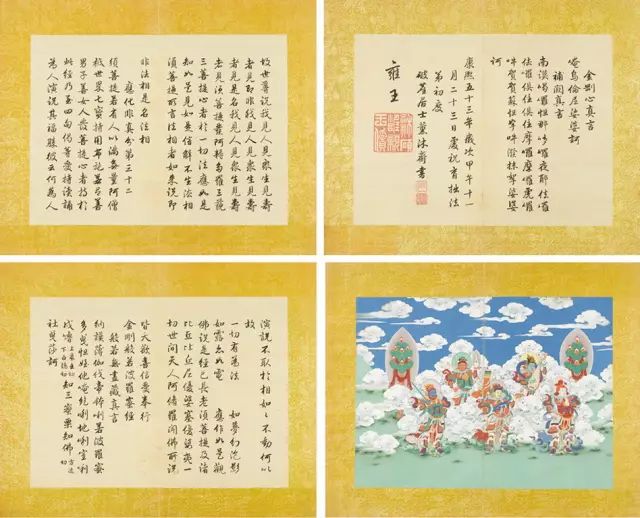 故世尊說我見人見眾生見壽
者見即非我見人見眾生見壽
者見是名我見人見眾生見壽
者見須菩提發阿耨多羅三藐
三菩提心者於一切法應如是
知如是見如是信解不生法相
須菩提所言法相者如來說即
非法相是名法相
應化非真分第三十二
須菩提若有人以滿無量阿僧
祇世界七寶持用布施若有善
男子善女人發菩提心者持於
此經乃至四句偈等受持讀誦
為人演說其福勝彼云何為人
演說不取於相如如不動何以
故
一切有為法 如夢幻泡影
如露亦如電 應作如是觀
佛說是經已長老須菩提及諸
比丘比丘尼優婆塞優婆夷一
切世間天人阿脩羅聞佛所說
皆大歡喜信受奉行
金剛般若波羅蜜經
般若無盡藏真言
納謨薄伽伐帝鉢唎若波羅蜜
多曳怛姪他唵紇唎地唎室唎
戍嚕知三蜜栗知佛
社曳莎訶
金剛心真言
唵烏倫尼娑婆訶
補闕真言
南謨喝囉怛那哆囉夜耶佉囉
佉囉俱住俱住摩囉摩囉虎囉
吽賀賀蘇怛拏吽潑抹拏娑婆
訶
康熙五十三年歲次甲午十一
月二十三日慶祝法
第初度
居士沐齋書
雍王